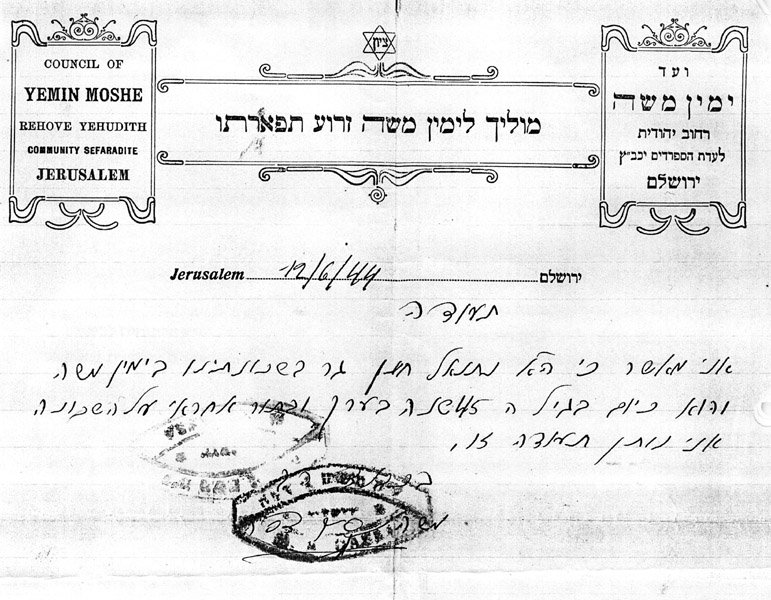 COUNCIL OF
YEMIN MOSHE
REHOVE YEHUDITH
COMMUNITY SEFARADITE
JERUSALEM
ציון
מוליך לימין משה זרוע תפארתו
ועד
ימין משה
רחוב יהודית
לעדת הספרדים יכב״ץ
ירושלם
Jerusalem 12/6/44 ירושלם
תעודה
אני מאשר כי ה׳א נתנאל חתן גר בשכונתינו בימין משה
והוא כיום בגיל ה 45 שנה בערך ובתור אחראי על השכונה
אני נותן תעודה זו,